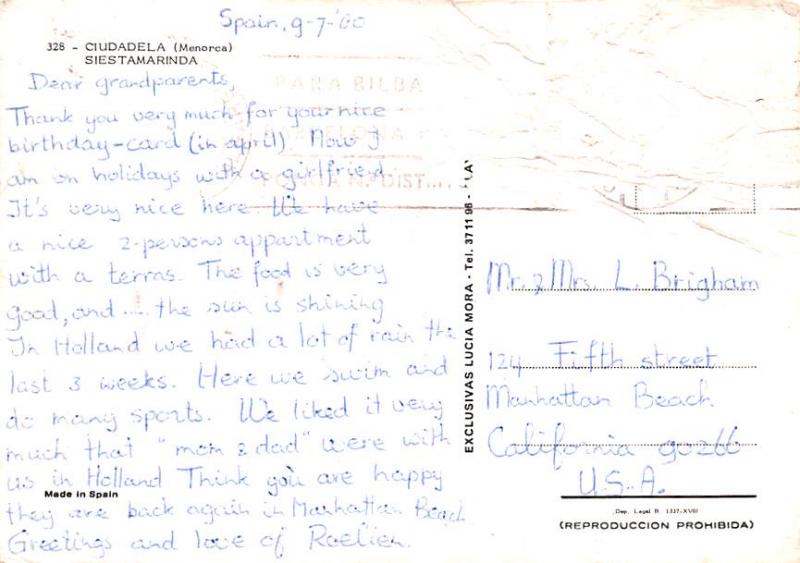 Spain, 9-7-'80
328 - CIUDADELA (Menorca)
SIESTAMARINDA
Dear grandparents,
Thank you very much for your nice
birthday-card (in april). Now I
am on holidays with a girlfriend.
It's very nice here. We have
a nice 2-persons appartment
with a terras. The food is very
good, and .... the sun is shining
In Holland we had a lot of rain the
last 3 weeks. Here we swim and
do many sports. We liked it very
much that "mom & dad" were with
us in Holland Think you are happy
they are back again in Manhattan Beach
Greetings and love of Roelien.
Made in Spain
PARA BILBA
EXCLUSIVAS LUCIA MORA - Tel. 37 11 96 -
Mr. & Mrs. L. Brigham
124 Fifth street
Manhattan Beach
California 90266
U.S.A.
Dep. Legal B. 1337-XVIII
(REPRODUCCION PROHIBIDA)